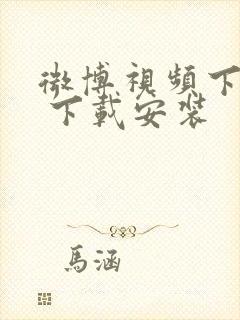 微博視頻下
下載安裝
馬涵